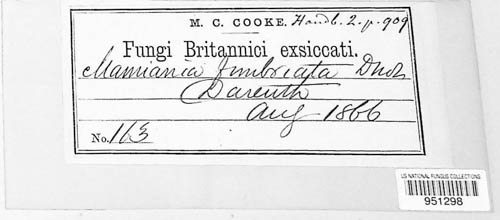 M. C. COOKE. Handb. 2. p. 909
Fungi Britannici exsiccati.
Mamiania fimbriata
Darenth
Aug 1866
No. 163
US NATIONAL FUNGUS COLLECTIONS
951298